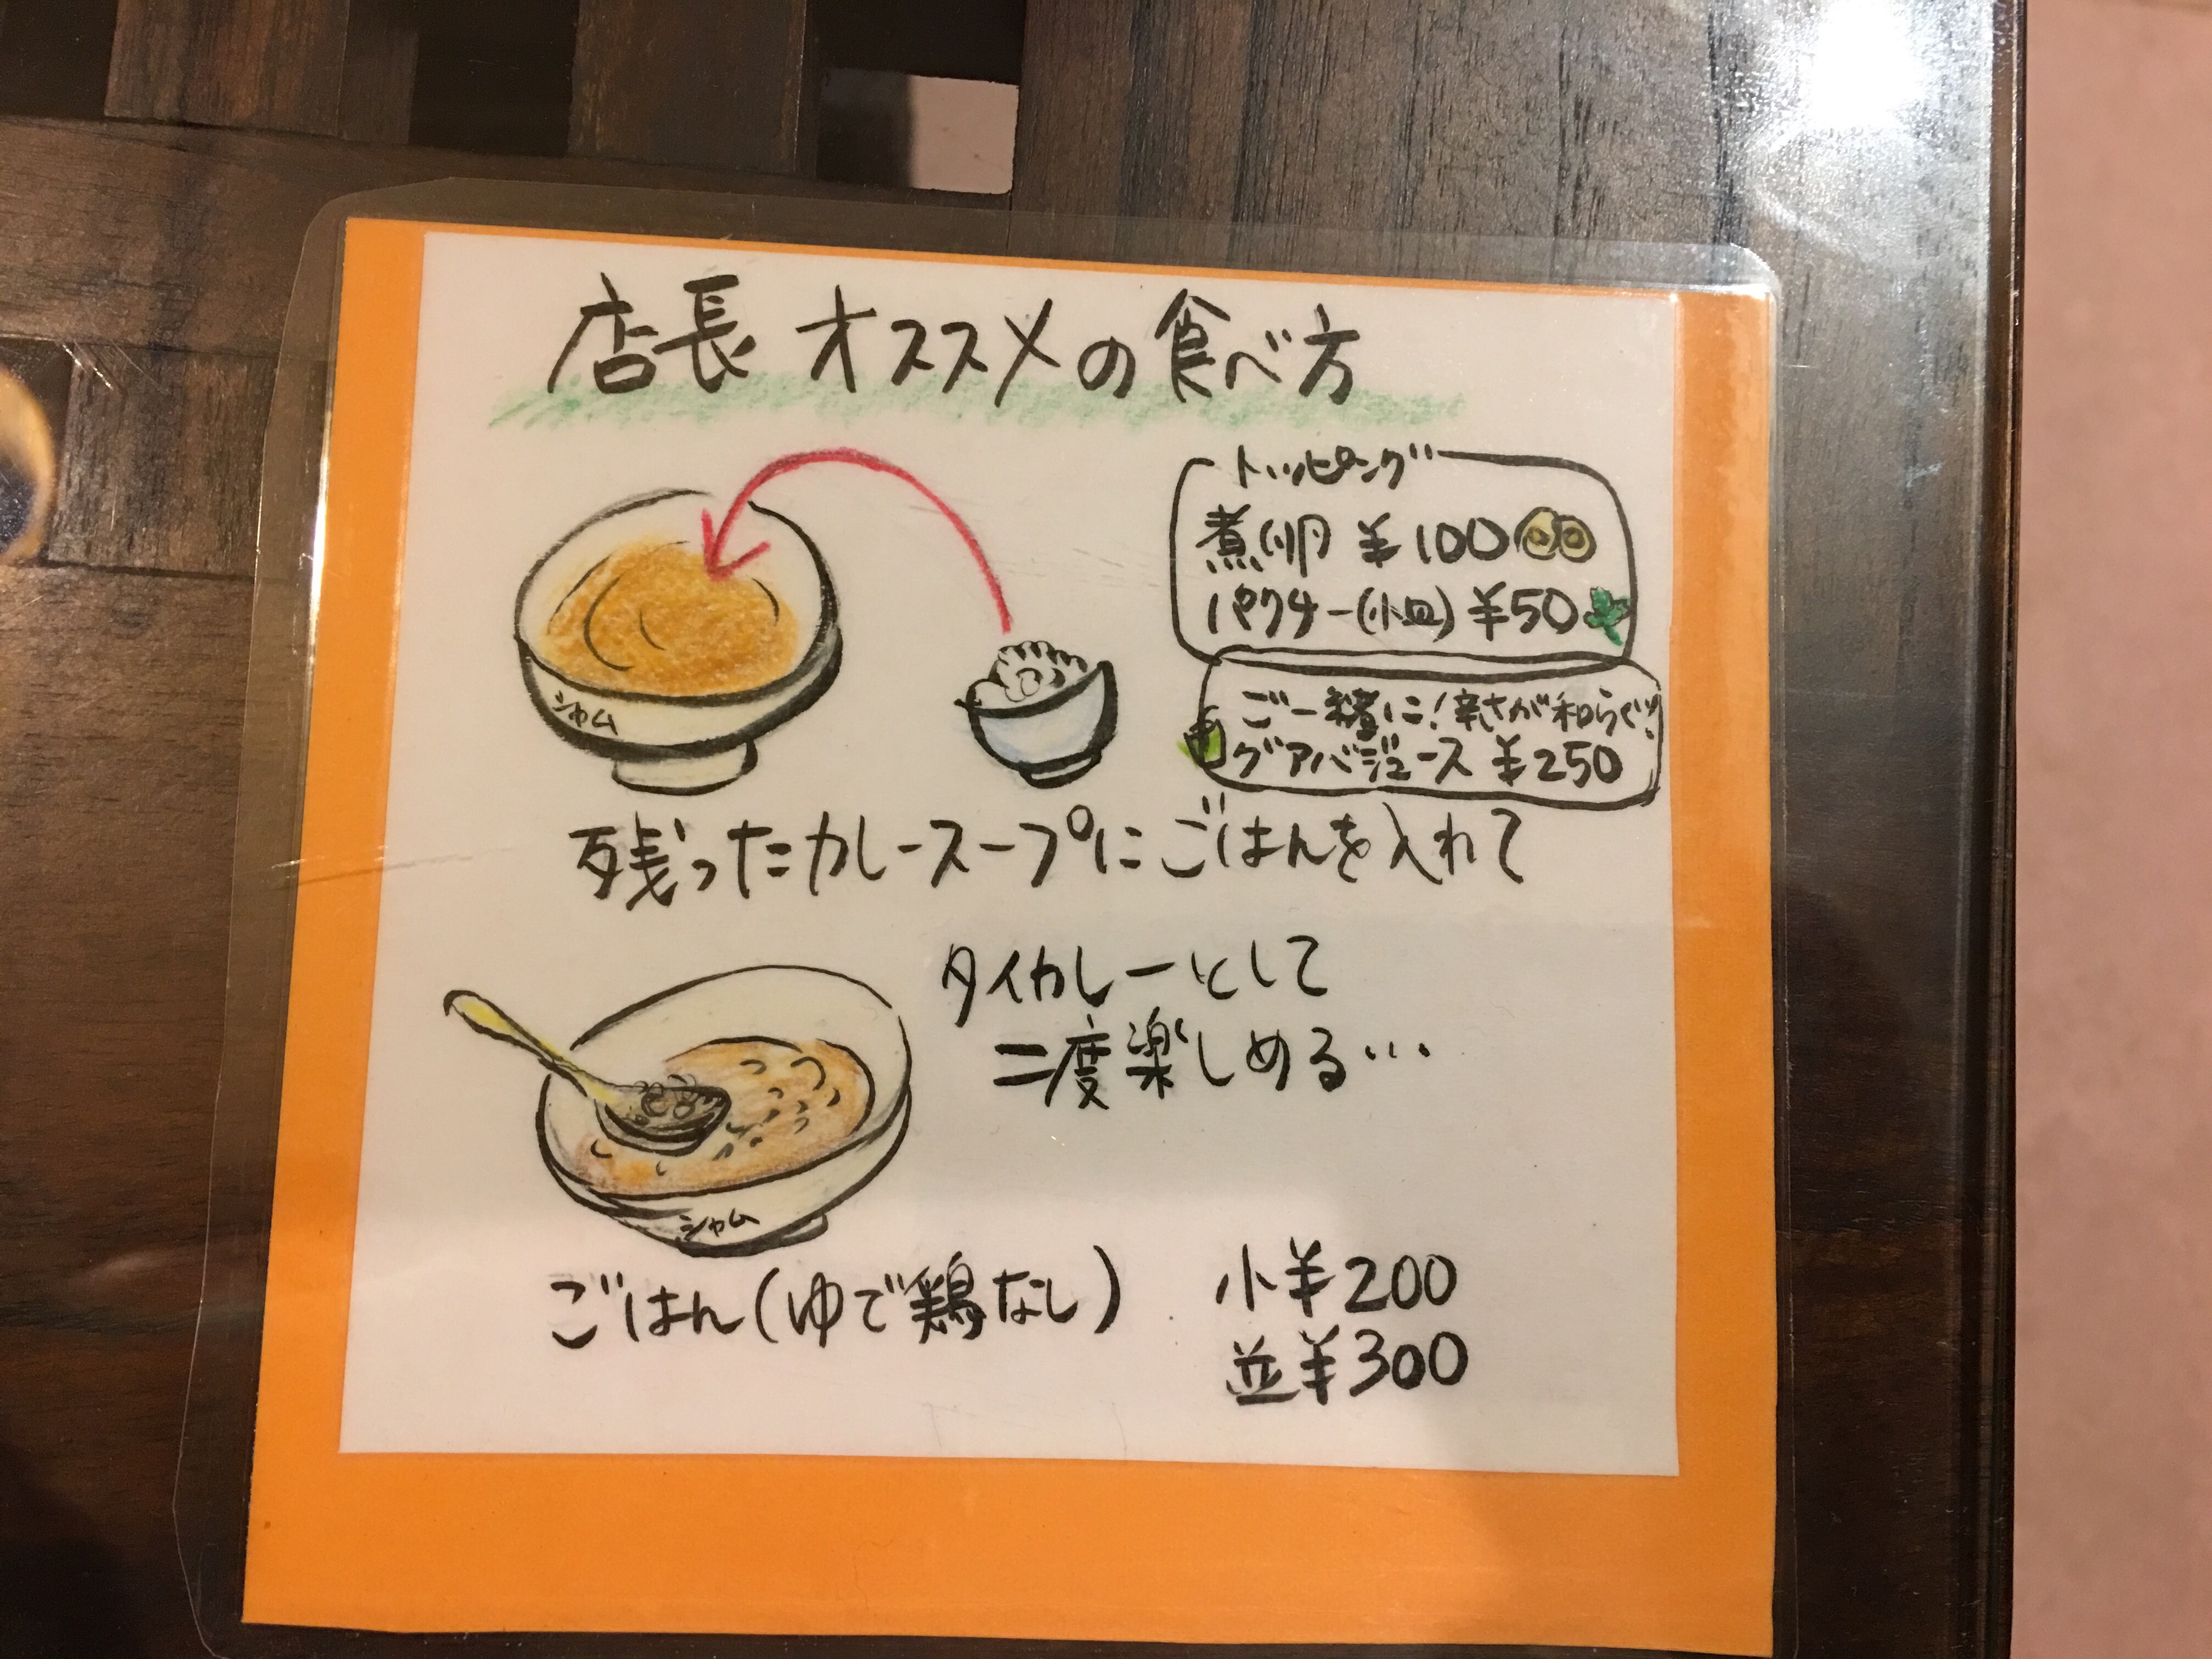 店長オススメの食べ方
トッピング
煮卵 ¥100
パクチー(小皿) ¥50
ご一緒に!辛さが和らぐ!
グアバジュース ¥250
シャム
残ったカレースープにごはんを入れて
タイカレーとして
二度楽しめる…
シャム
ごはん(ゆで鶏なし) 小¥200
並¥300